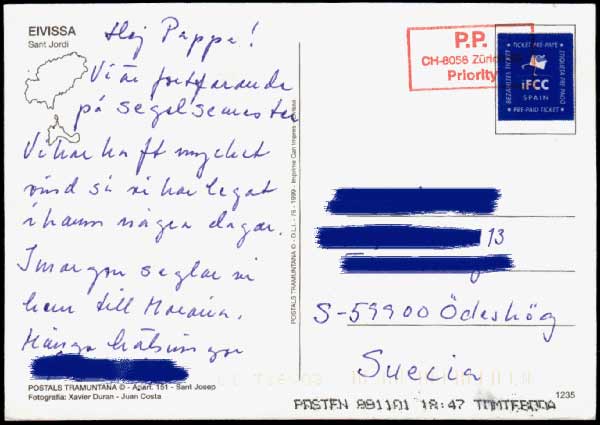 EIVISSA
Sant Jordi
Hej Pappa!
Vi är fortfarande
på segelsemester
Vi har haft mycket
vind så vi har legat
i hamn några dagar.
Imorgon seglar vi
hem till Moraira.
Många hälsningar
POSTALS TRAMUNTANA © - Apart. 151 - Sant Josep
Fotografia: Xavier Duran - Juan Costa
POSTALS TRAMUNTANA © - D.L.I.
- 1999 - Imprime Cart Impres
P.P.
CH-8058 Züri
Priority
TICKET PRE-PAYE
BEZAHLTES TICKET
ETIQUETA PRE PAGO
iFCC
SPAIN
PRE-PAID TICKET
13
S-59900 Ödeshög
Suecia
1235
POSTEN 991101 18:47 TOMTEBODA